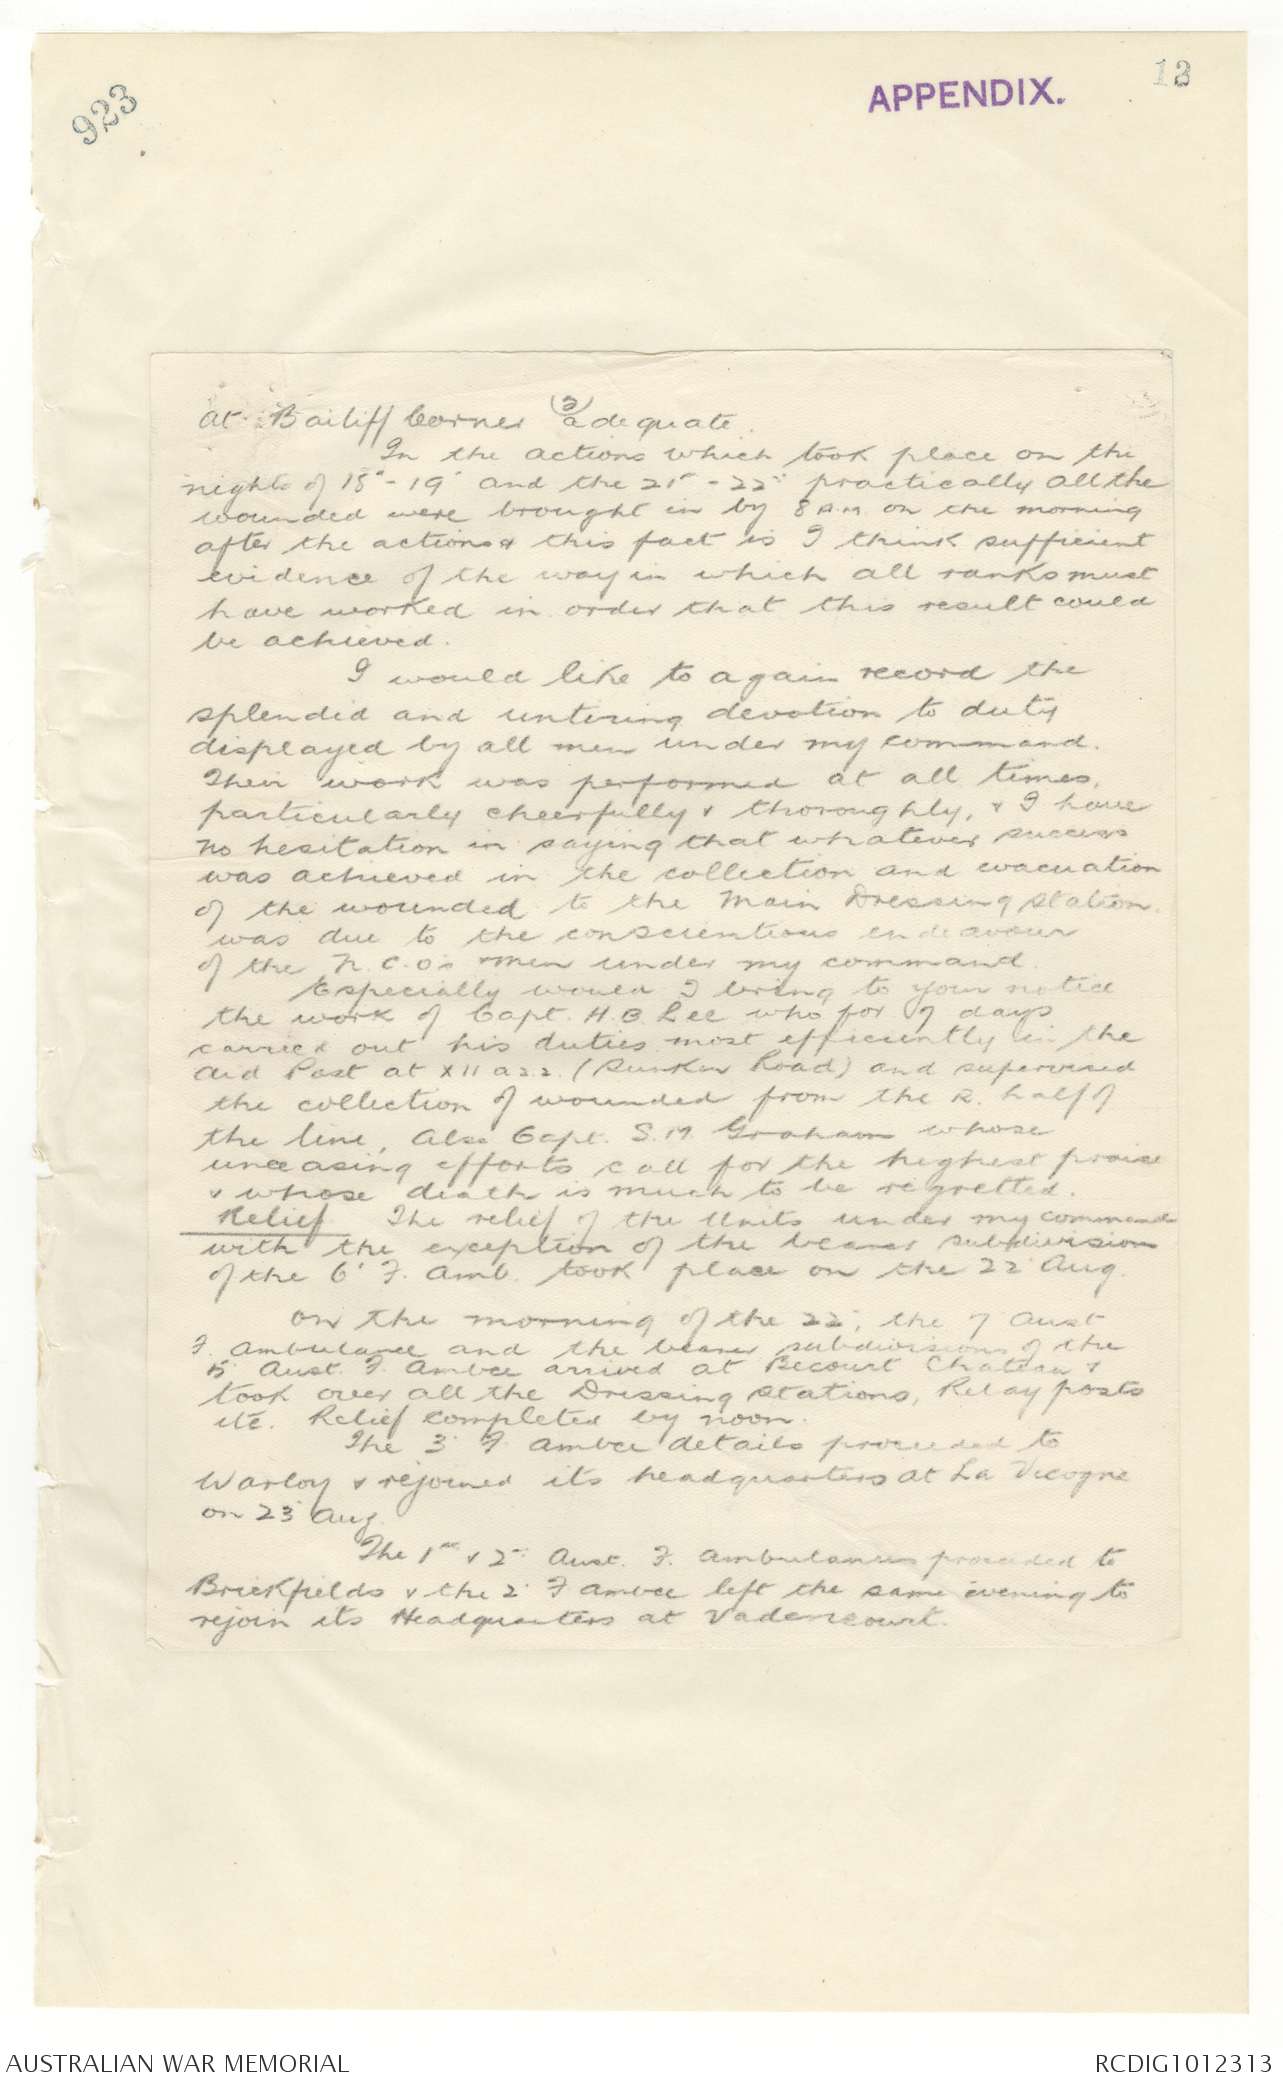 923
APPENDIX.
12
(3)
at Bailiff Corner adequate.
In the actions which took place on the
nights of 18th - 19th and the 21st - 22nd practically all the
wounded were brought in by 8 A.M. on the morning
after the actions & this fact is I think sufficient
evidence of the way in which all ranks must
have worked in order that this result could
be achieved.
I would like to again record the
splendid and untiring devotion to duty
displayed by all men under my command.
Their work was performed at all times,
particularly cheerfully & thoroughly, & I have
no hesitation in saying that whatever success
was achieved in the collection and evacuation
of the wounded to the Main Dressing Station
was due to the conscientious endeavour
of the N.C.O's & men under my command.
Especially would I bring to your notice
the work of Capt. H.B. Lee who for 7 days
carried out his duties most efficiently in the
Aid Post at X 11 a 2.2. (Sunken Road) and supervised
the collection of wounded from the R. half of
the line, Also Capt. S.M. Graham whose
unceasing efforts call for the highest praise
& whose death is much to be regretted.
Relief The relief of the Units under my command
with the exception of the bearer subdivision
of the 6th F. Amb. took place on the 22nd Aug.
On the morning of the 22nd, the 7 Aust
F. Ambulance and the bearer subdivisions of the
5th Aust. F. Ambce arrived at Becourt Chateau &
took over all the Dressing Stations, Relay posts
etc. Relief completed by noon.
The 3rd F. Ambce details proceeded to
Warloy & rejoined its headquarters at La Vicogne
on 23rd Aug.
The 1st & 2nd Aust. F. Ambulances proceeded to
Brickfields & the 2nd F Ambce left the same evening to
rejoin its Headquarters at Vadencourt.
AUSTRALIAN WAR MEMORIAL
RCDIG1012313